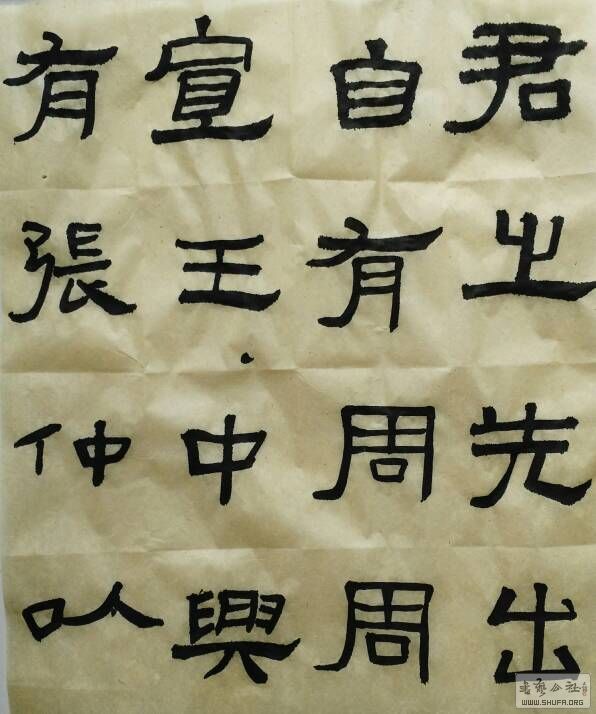 君之先出
自有周周
宣王中興
有張仲以
WWW.SHUFA.ORG